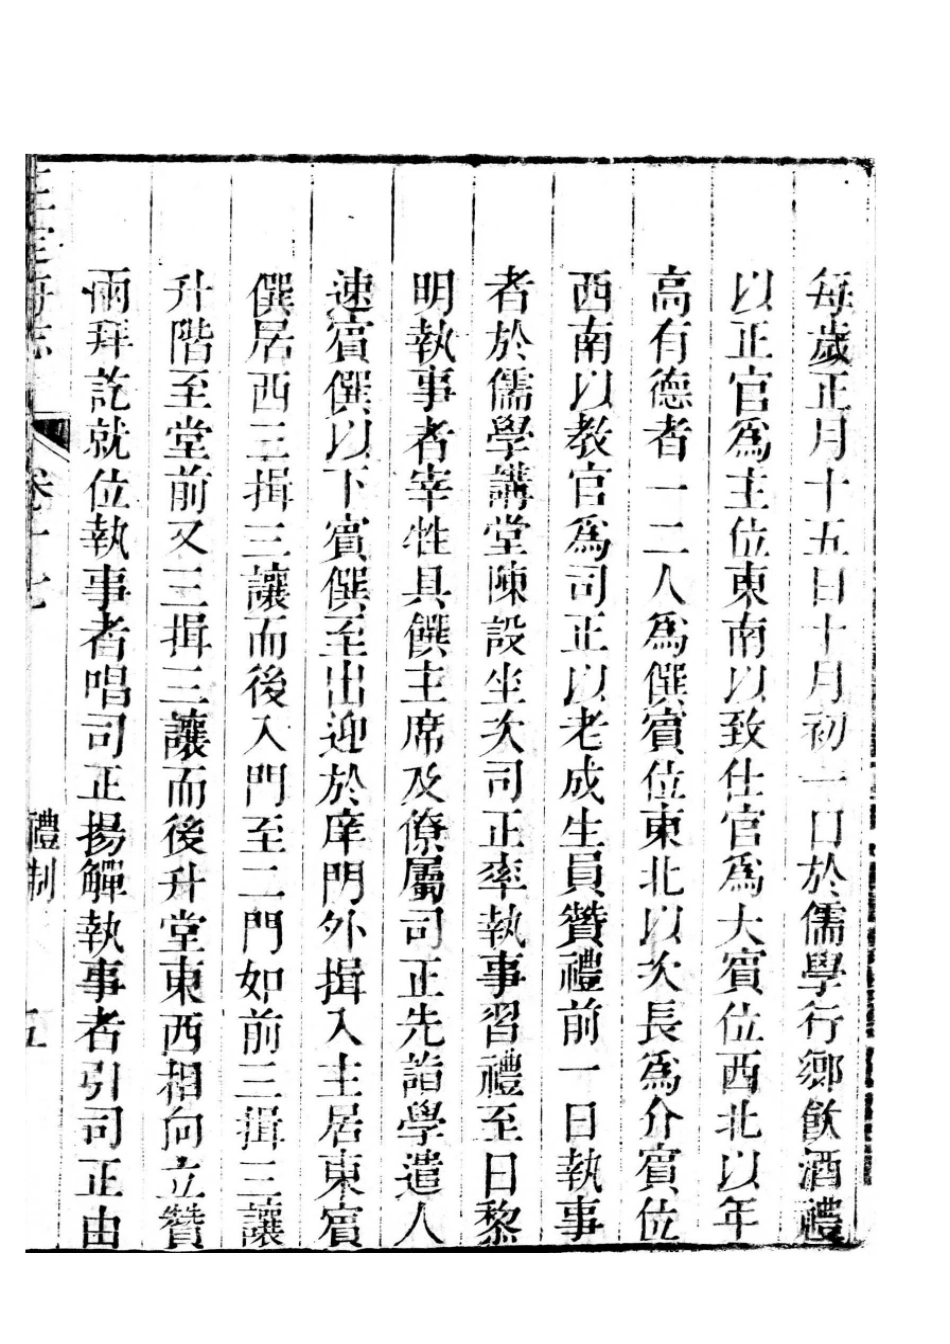 每歲正月十五日十月初一日於儒學行鄉飲酒禮
以正官爲主位東南以致仕官爲大賓位西北以年
高有德者一二人爲僎賓位東北以次長爲介賓位
西南以教官爲司正以老成生員贊禮前一日執事
者於儒學講堂陳設坐次司正率執事習禮至日黎
明執事者宰牲具饌主席及僚屬司正先詣學遣人
速賓僎以下賓僎至出迎於庠門外揖入主居東賓
僎居西三揖三讓而後入門至二門如前三揖三讓
升階至堂前又三揖三讓而後升堂東西相向立贊
兩拜訖就位執事者唱司正揚觶執事者引司正由
志 卷十七 禮制 五